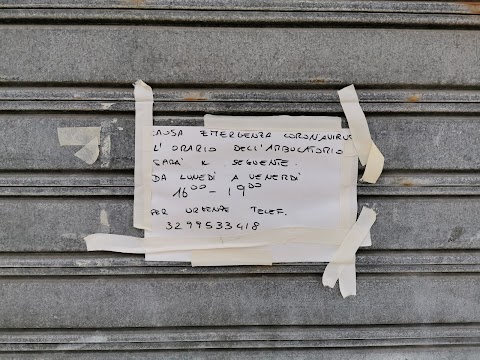 CAUSA EMERGENZA CORONAVIRUS
L'ORARIO DELL'AMBULATORIO
SARA' IL SEGUENTE.
DA LUNEDÌ A VENERDÌ
16⁰⁰ - 19⁰⁰
PER URGENZE TELEF.
3299533418